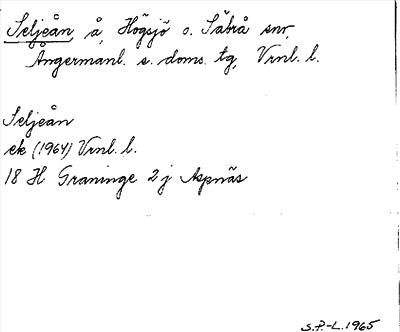 Seljeån, å, Högsjö o. Säbrå snr,
Ångermanl. s. doms. tg, Vrnl. l.
Seljeån
ek (1964) Vrnl. l.
18 H Graninge 2 j Aspnäs
S.P.-L. 1965